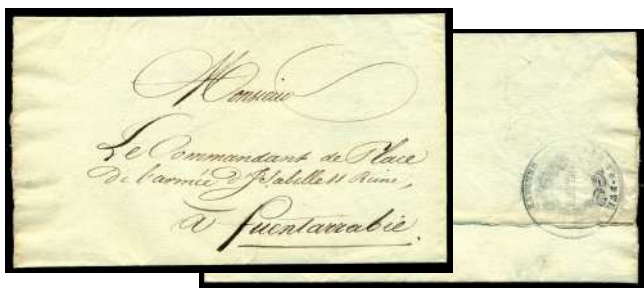 Monsieur
Le Commandant de Place
de l'armée d'Isabelle II Reine,
à Fuentarrabie.